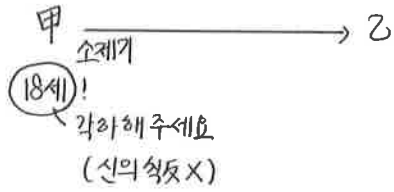 甲 → 乙
소제기
18세!
각하해주세요
(신의칙反X)